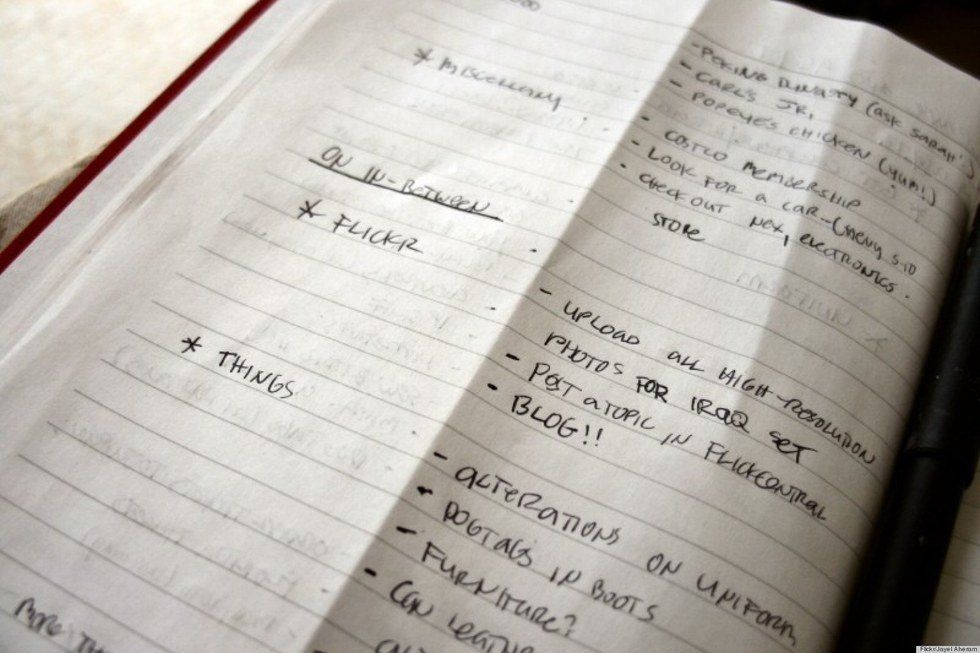 * MISCELLANY
- PEKING DYNASTY (ASK SARAH)
- CARL'S JR,
- POPEYE'S CHICKEN (YUM!)
- COSTCO MEMBERSHIP
- LOOK FOR A CAR-(CHEVY S-10
- CHECK OUT NEX, ELECTRONICS
STORE
ON IN-BETWEEN
* FLICKR
- UPLOAD ALL HIGH-RESOLUTION
PHOTOS FOR IRAQ SET
- POST A TOPIC IN FLICKCENTRAL
- BLOG!!
* THINGS
- ALTERATIONS ON UNIFORM
- DOGTAGS IN BOOTS
- FURNITURE?
- CAN
MORE
Flickr/Jayel Aheram